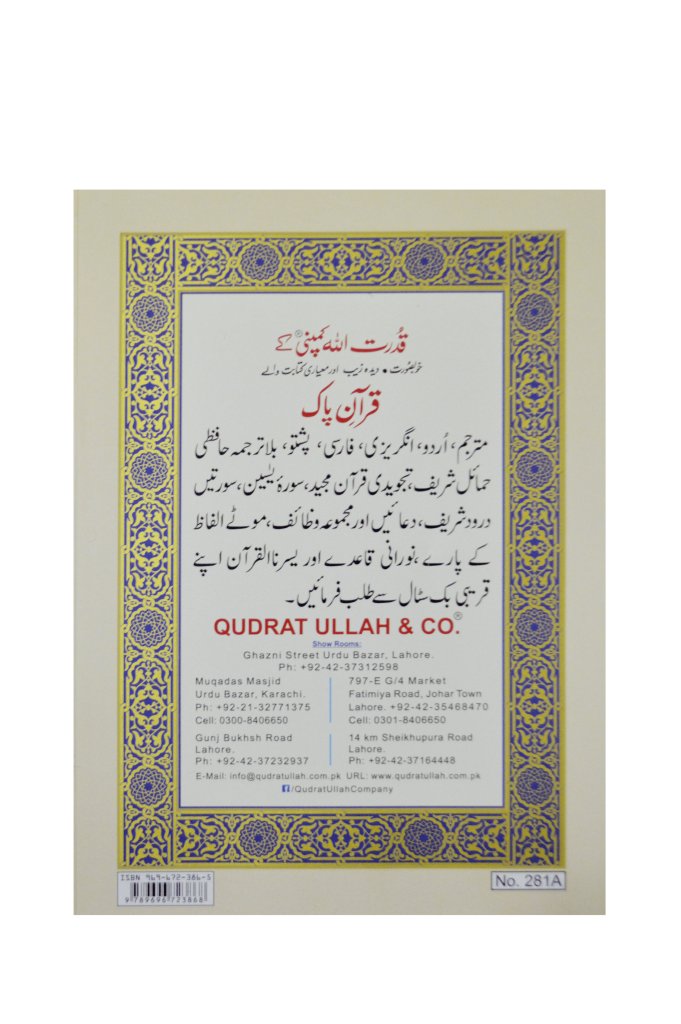 قُدرت اللہ کمپنی® کے
خوبصورت • دیدہ زیب اور معیاری کتابت والے
قرآنِ پاک
مترجم، اُردو، انگریزی، فارسی، پشتو، بلا ترجمہ حافظی
حمائل شریف، تجویدی قرآن مجید، سورۂ یٰسین، سورتیں
درود شریف، دعائیں اور مجموعہ وظائف، موٹے الفاظ
کے پارے، نورانی قاعدے اور یسرنا القرآن اپنے
قریبی بک سٹال سے طلب فرمائیں۔
QUDRAT ULLAH & CO.®
Show Rooms:
Ghazni Street Urdu Bazar, Lahore.
Ph: +92-42-37312598
Muqadas Masjid
Urdu Bazar, Karachi.
Ph: +92-21-32771375
Cell: 0300-8406650
797-E G/4 Market
Fatimiya Road, Johar Town
Lahore. +92-42-35468470
Cell: 0301-8406650
Gunj Bukhsh Road
Lahore.
Ph: +92-42-37232937
14 km Sheikhupura Road
Lahore.
Ph: +92-42-37164448
E-Mail: info@qudratullah.com.pk URL: www.qudratullah.com.pk
f/QudratUllahCompany
ISBN 969-672-386-5
9 789696 723868
No. 281A